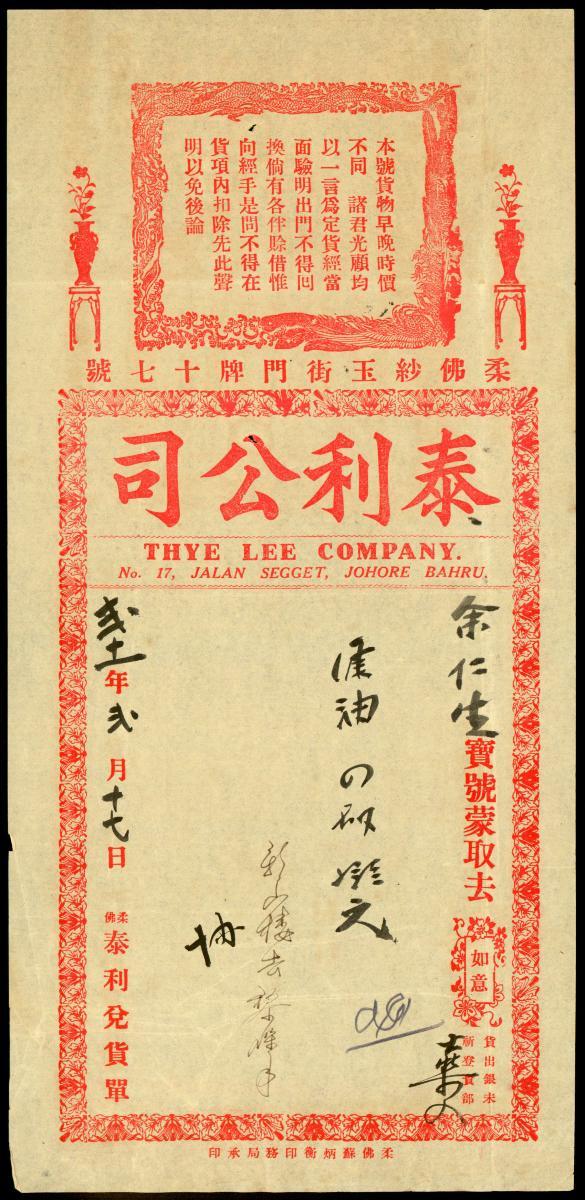 本號貨物早晚時價
不同 諸君光顧均
以一言為定貨經當
面驗明出門不得回
換倘有各伴賒借惟
向經手是問不得在
貨項內扣除先此聲
明以免後論
柔佛紗玉街門牌十七號
泰利公司
THYE LEE COMPANY.
No. 17, JALAN SEGGET, JOHORE BAHRU.
余仁生寶號蒙取去
如意
貨出銀未
油
元
年 月十七日
柔佛
泰利兌貨單
柔佛蘇炳衡印務局承印